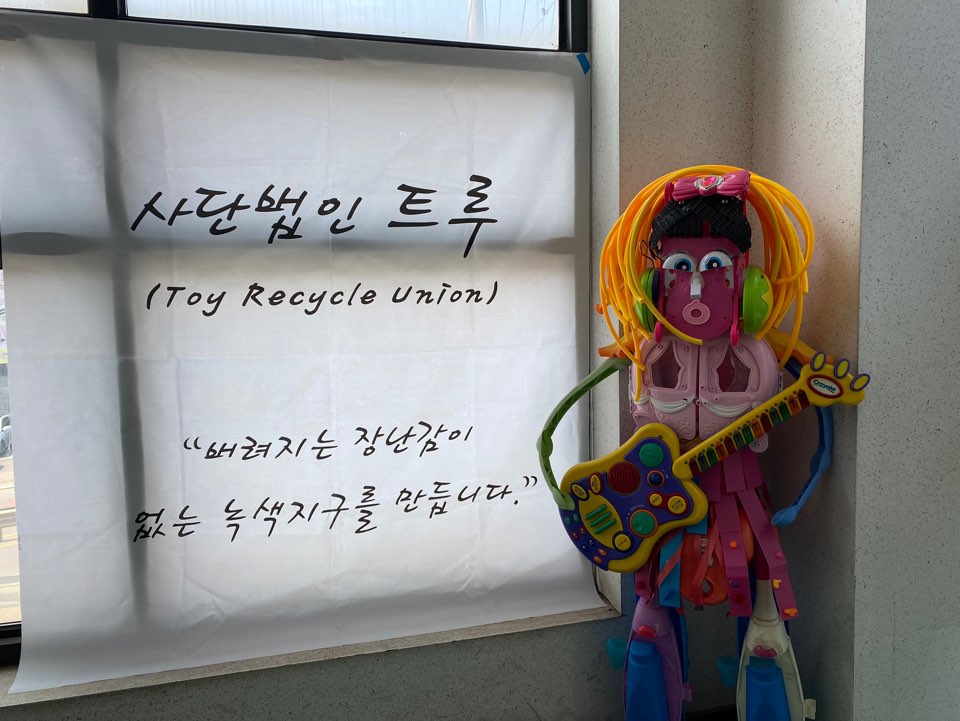 사단법인 트루
(Toy Recycle Union)
“버려지는 장난감이
없는 녹색지구를 만듭니다.”
Crayola